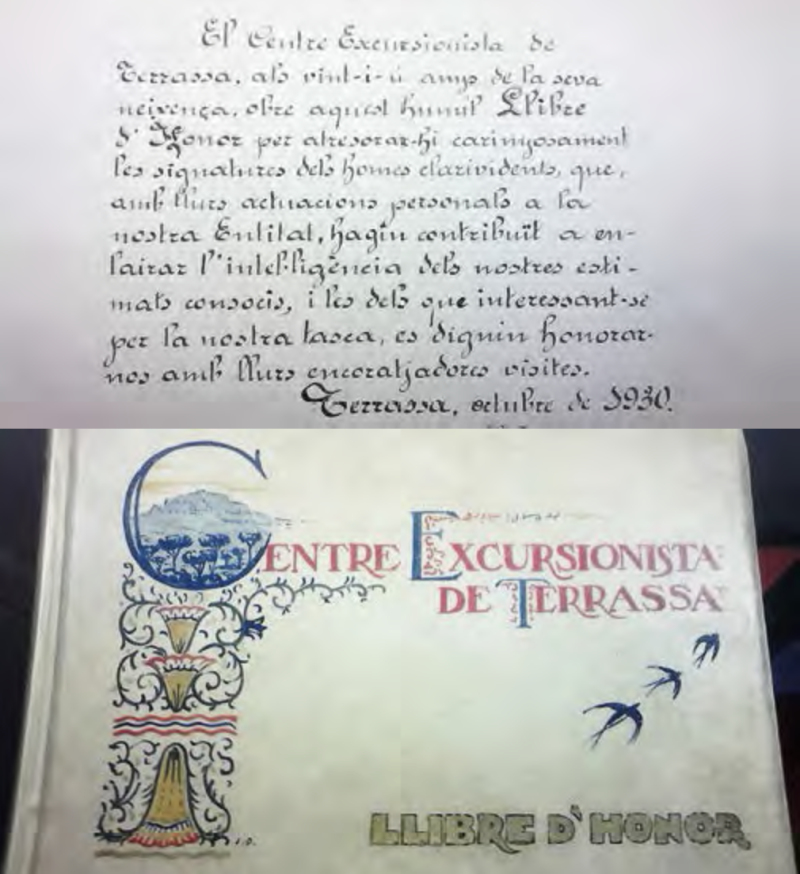 El Centre Excursionista de
Terrassa, als vint-i-ú anys de la seva
neixença, obre aquest humil Llibre
d'Honor per atresorar-hi carinyosament
les signatures dels homes clarividents, que,
amb llurs actuacions personals a la
nostra Entitat, hagin contribuït a en-
lairar l'intel·ligència dels nostres esti-
mats consocis, i les dels que interessant-se
per la nostra tasca, es dignin honorar-
nos amb llurs encoratjadores visites.
Terrassa, octubre de 1930.
CENTRE EXCURSIONISTA
DE TERRASSA
LLIBRE D'HONOR